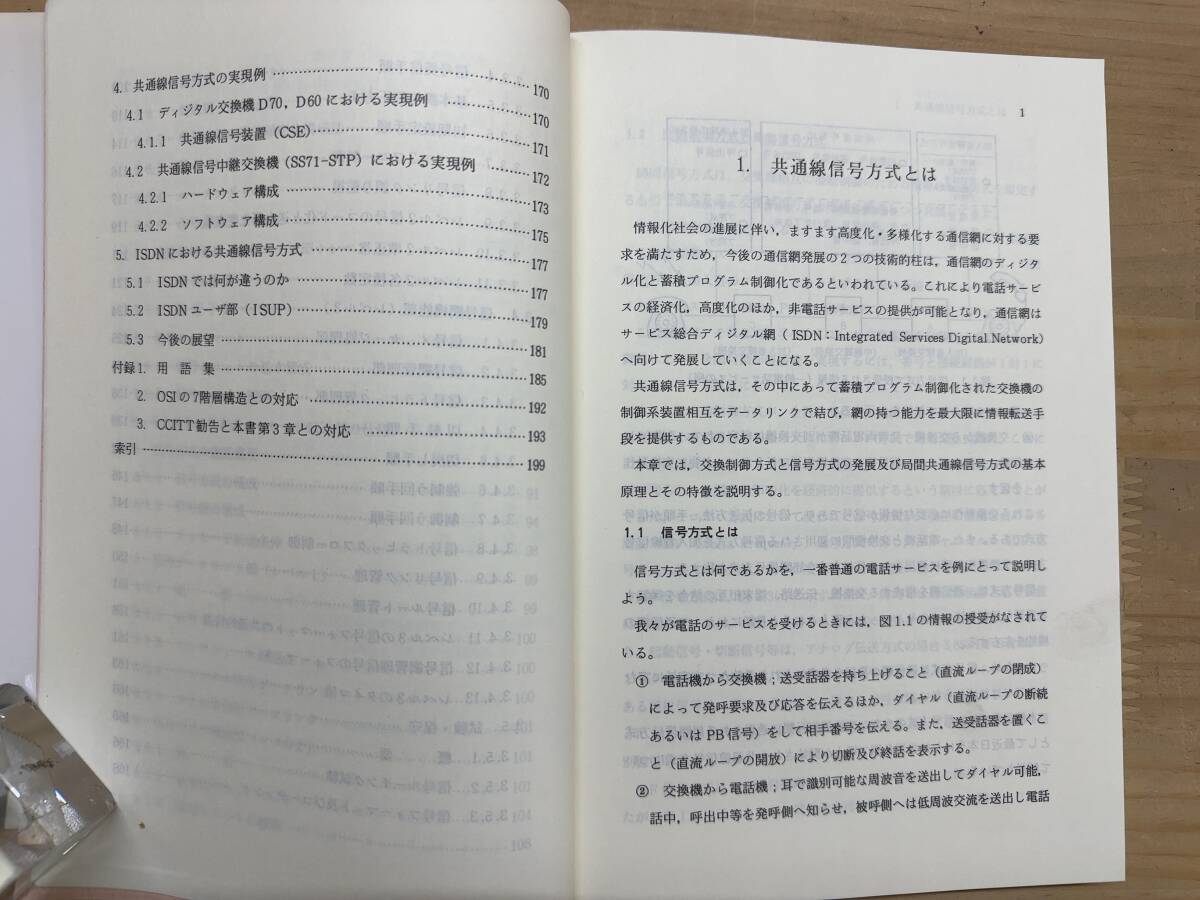 4. 共通線信号方式の実現例 …… 170
4.1 ディジタル交換機D70，D60における実現例 …… 170
4.1.1 共通線信号装置（CSE）…… 171
4.2 共通線信号中継交換機（SS71-STP）における実現例 …… 172
4.2.1 ハードウェア構成 …… 173
4.2.2 ソフトウェア構成 …… 175
5. ISDNにおける共通線信号方式 …… 177
5.1 ISDNでは何が違うのか …… 177
5.2 ISDNユーザ部（ISUP）…… 179
5.3 今後の展望 …… 181
付録1. 用語集 …… 185
2. OSIの7階層構造との対応 …… 192
3. CCITT勧告と本書第3章との対応 …… 193
索引 …… 199
1
1. 共通線信号方式とは
情報化社会の進展に伴い，ますます高度化・多様化する通信網に対する要
求を満たすため，今後の通信網発展の2つの技術的柱は，通信網のディジタ
ル化と蓄積プログラム制御化であるといわれている。これにより電話サービ
スの経済化，高度化のほか，非電話サービスの提供が可能となり，通信網は
サービス総合ディジタル網（ISDN：Integrated Services Digital Network）
へ向けて発展していくことになる。
共通線信号方式は，その中にあって蓄積プログラム制御化された交換機の
制御系装置相互をデータリンクで結び，網の持つ能力を最大限に情報転送手
段を提供するものである。
本章では，交換制御方式と信号方式の発展及び局間共通線信号方式の基本
原理とその特徴を説明する。
1.1 信号方式とは
信号方式とは何であるかを，一番普通の電話サービスを例にとって説明し
よう。
我々が電話のサービスを受けるときには，図1.1の情報の授受がなされて
いる。
① 電話機から交換機；送受話器を持ち上げること（直流ループの閉成）
によって発呼要求及び応答を伝えるほか，ダイヤル（直流ループの断続
あるいはPB信号）をして相手番号を伝える。また，送受話器を置くこ
と（直流ループの開放）により切断及び終話を表示する。
② 交換機から電話機；耳で識別可能な周波音を送出してダイヤル可能，
話中，呼出中等を発呼側へ知らせ，被呼側へは低周波交流を送出し電話